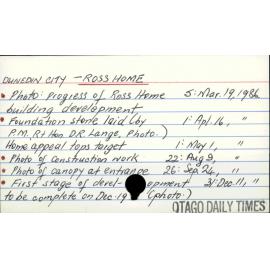 DUNEDIN CITY - ROSS HOME
• Photo: Progress of Ross Home 5: Mar. 19, 1986
building development
• Foundation stone laid (by 1: Apl. 16, "
P.M. Rt Hon D.R. Lange, Photo.)
Home appeal tops target 1: May 1, "
• Photo of construction work 22: Aug 9, "
• Photo of canopy at entrance 26: Sep. 24, "
• First stage of devel- opment 21: Dec. 11, "
to be complete on Dec. 19 (photo.)
OTAGO DAILY TIMES